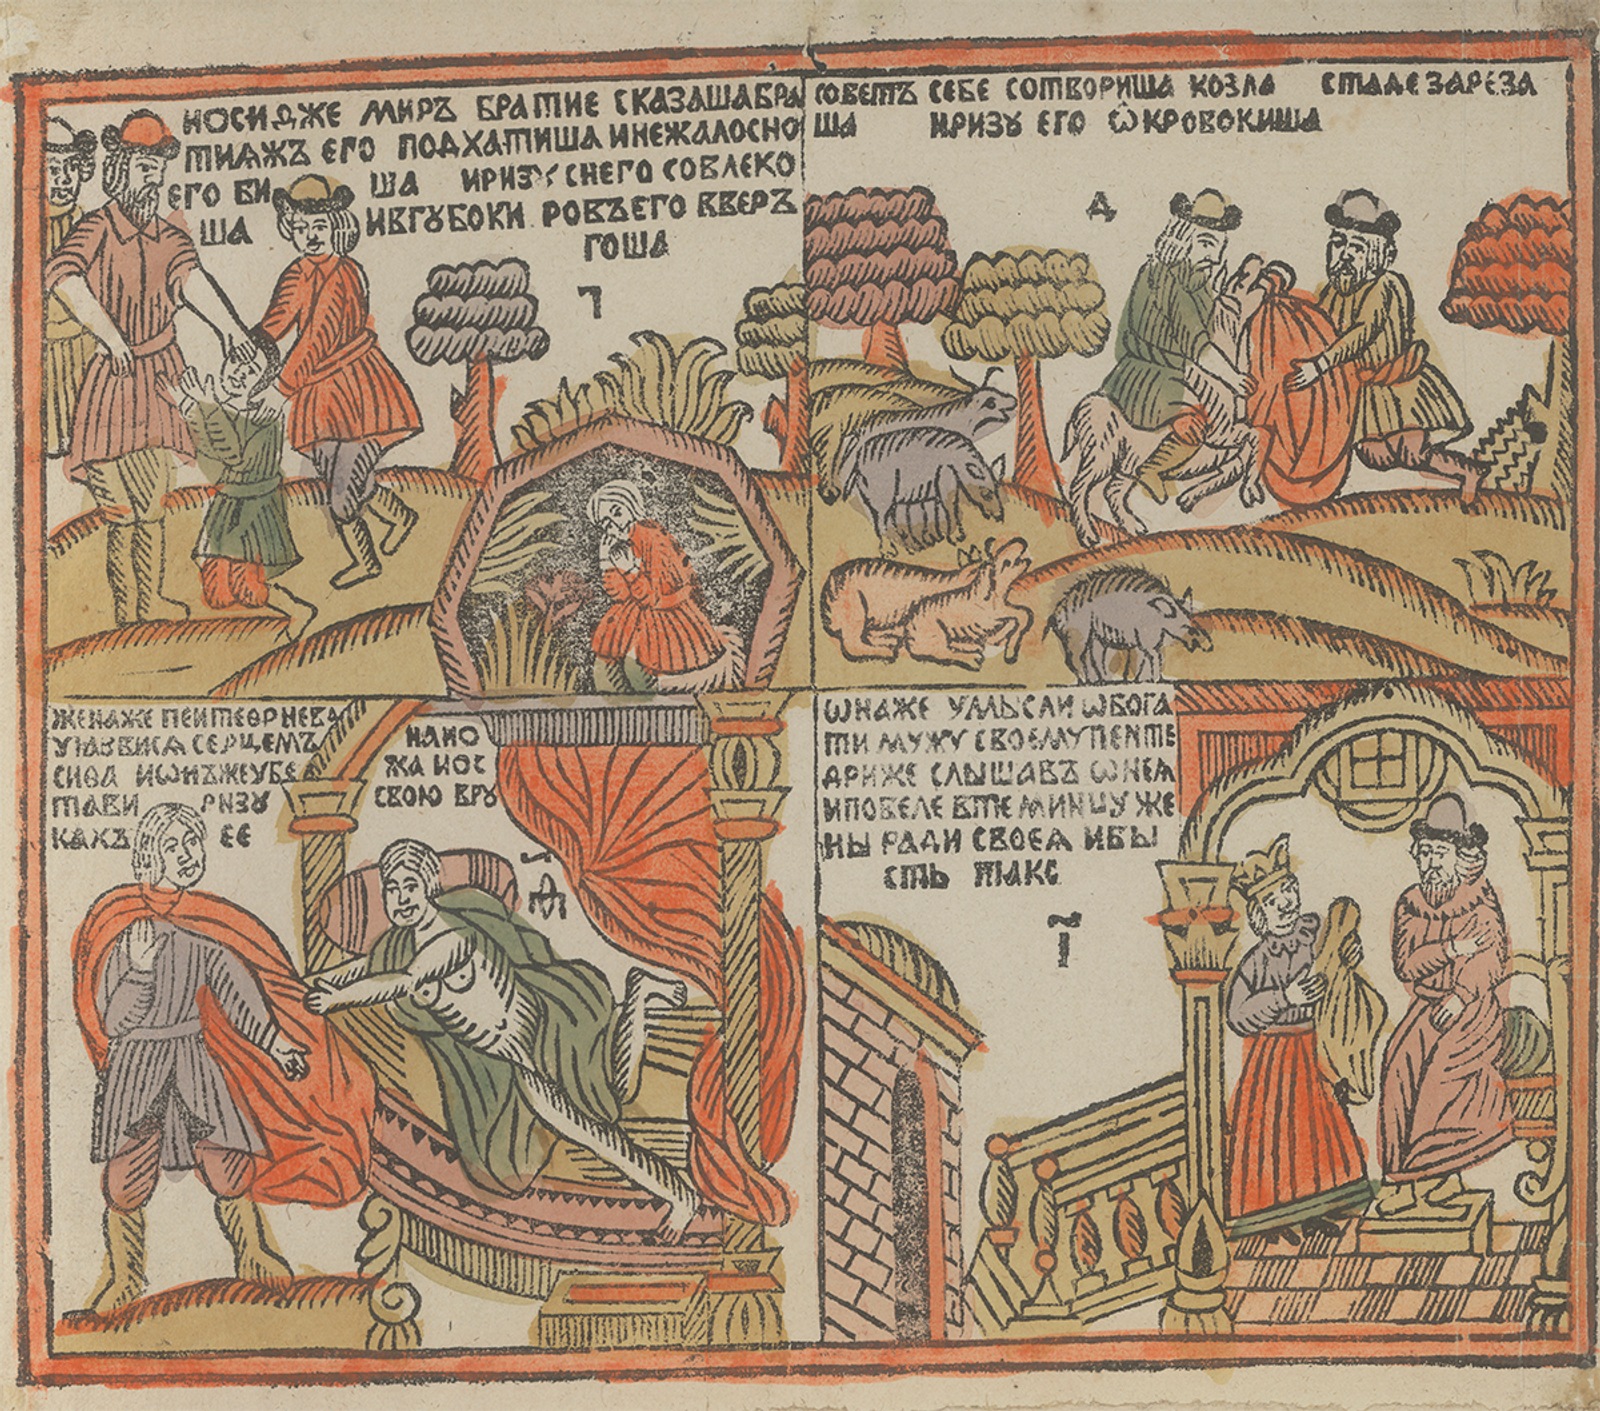 ИОСИДЖЕ МИРЪ БРАТИЕ СКАЗАША БРА
ТИѦЖЪ ЕГО ПОДХАТИША И НЕЖАЛОСНО
ЕГО БИ ША И РИЗУ СНЕГО СОВЛЕКО
ША ИВГУБОКИ РОВЪ ЕГО ВВЕРЪ
ГОША
Г
СОВЕТЪ СЕБЕ СОТВОРИША КОЗЛА СТАДЕ ЗАРЕЗА
ША ИРИЗУ ЕГО Ѡ КРОВОКИША
Д
ЖЕНАЖЕ ПЕНТЕФРИЕВА
УЯЗВИСѦ СЕРЦЕМЪ НАИО
СИФА ИѠНЪЖЕ УБЕ ЖА ИОС
ТАВИ РИЗУ СВОЮ ВРУ
КАХЪ ЕЕ
ѠНАЖЕ УМЫСЛИ ѠБОГА
ТИ МУЖУ СВОЕМУ ПЕНТЕ
ДРИЖЕ СЛЫШАВЪ Ѡ НЕѦ
И ПОВЕЛЕ ВТЕМИНЦУ ЖЕ
НЫ РАДИ СВОЕѦ И БЫ
СТЬ ТАКО
І